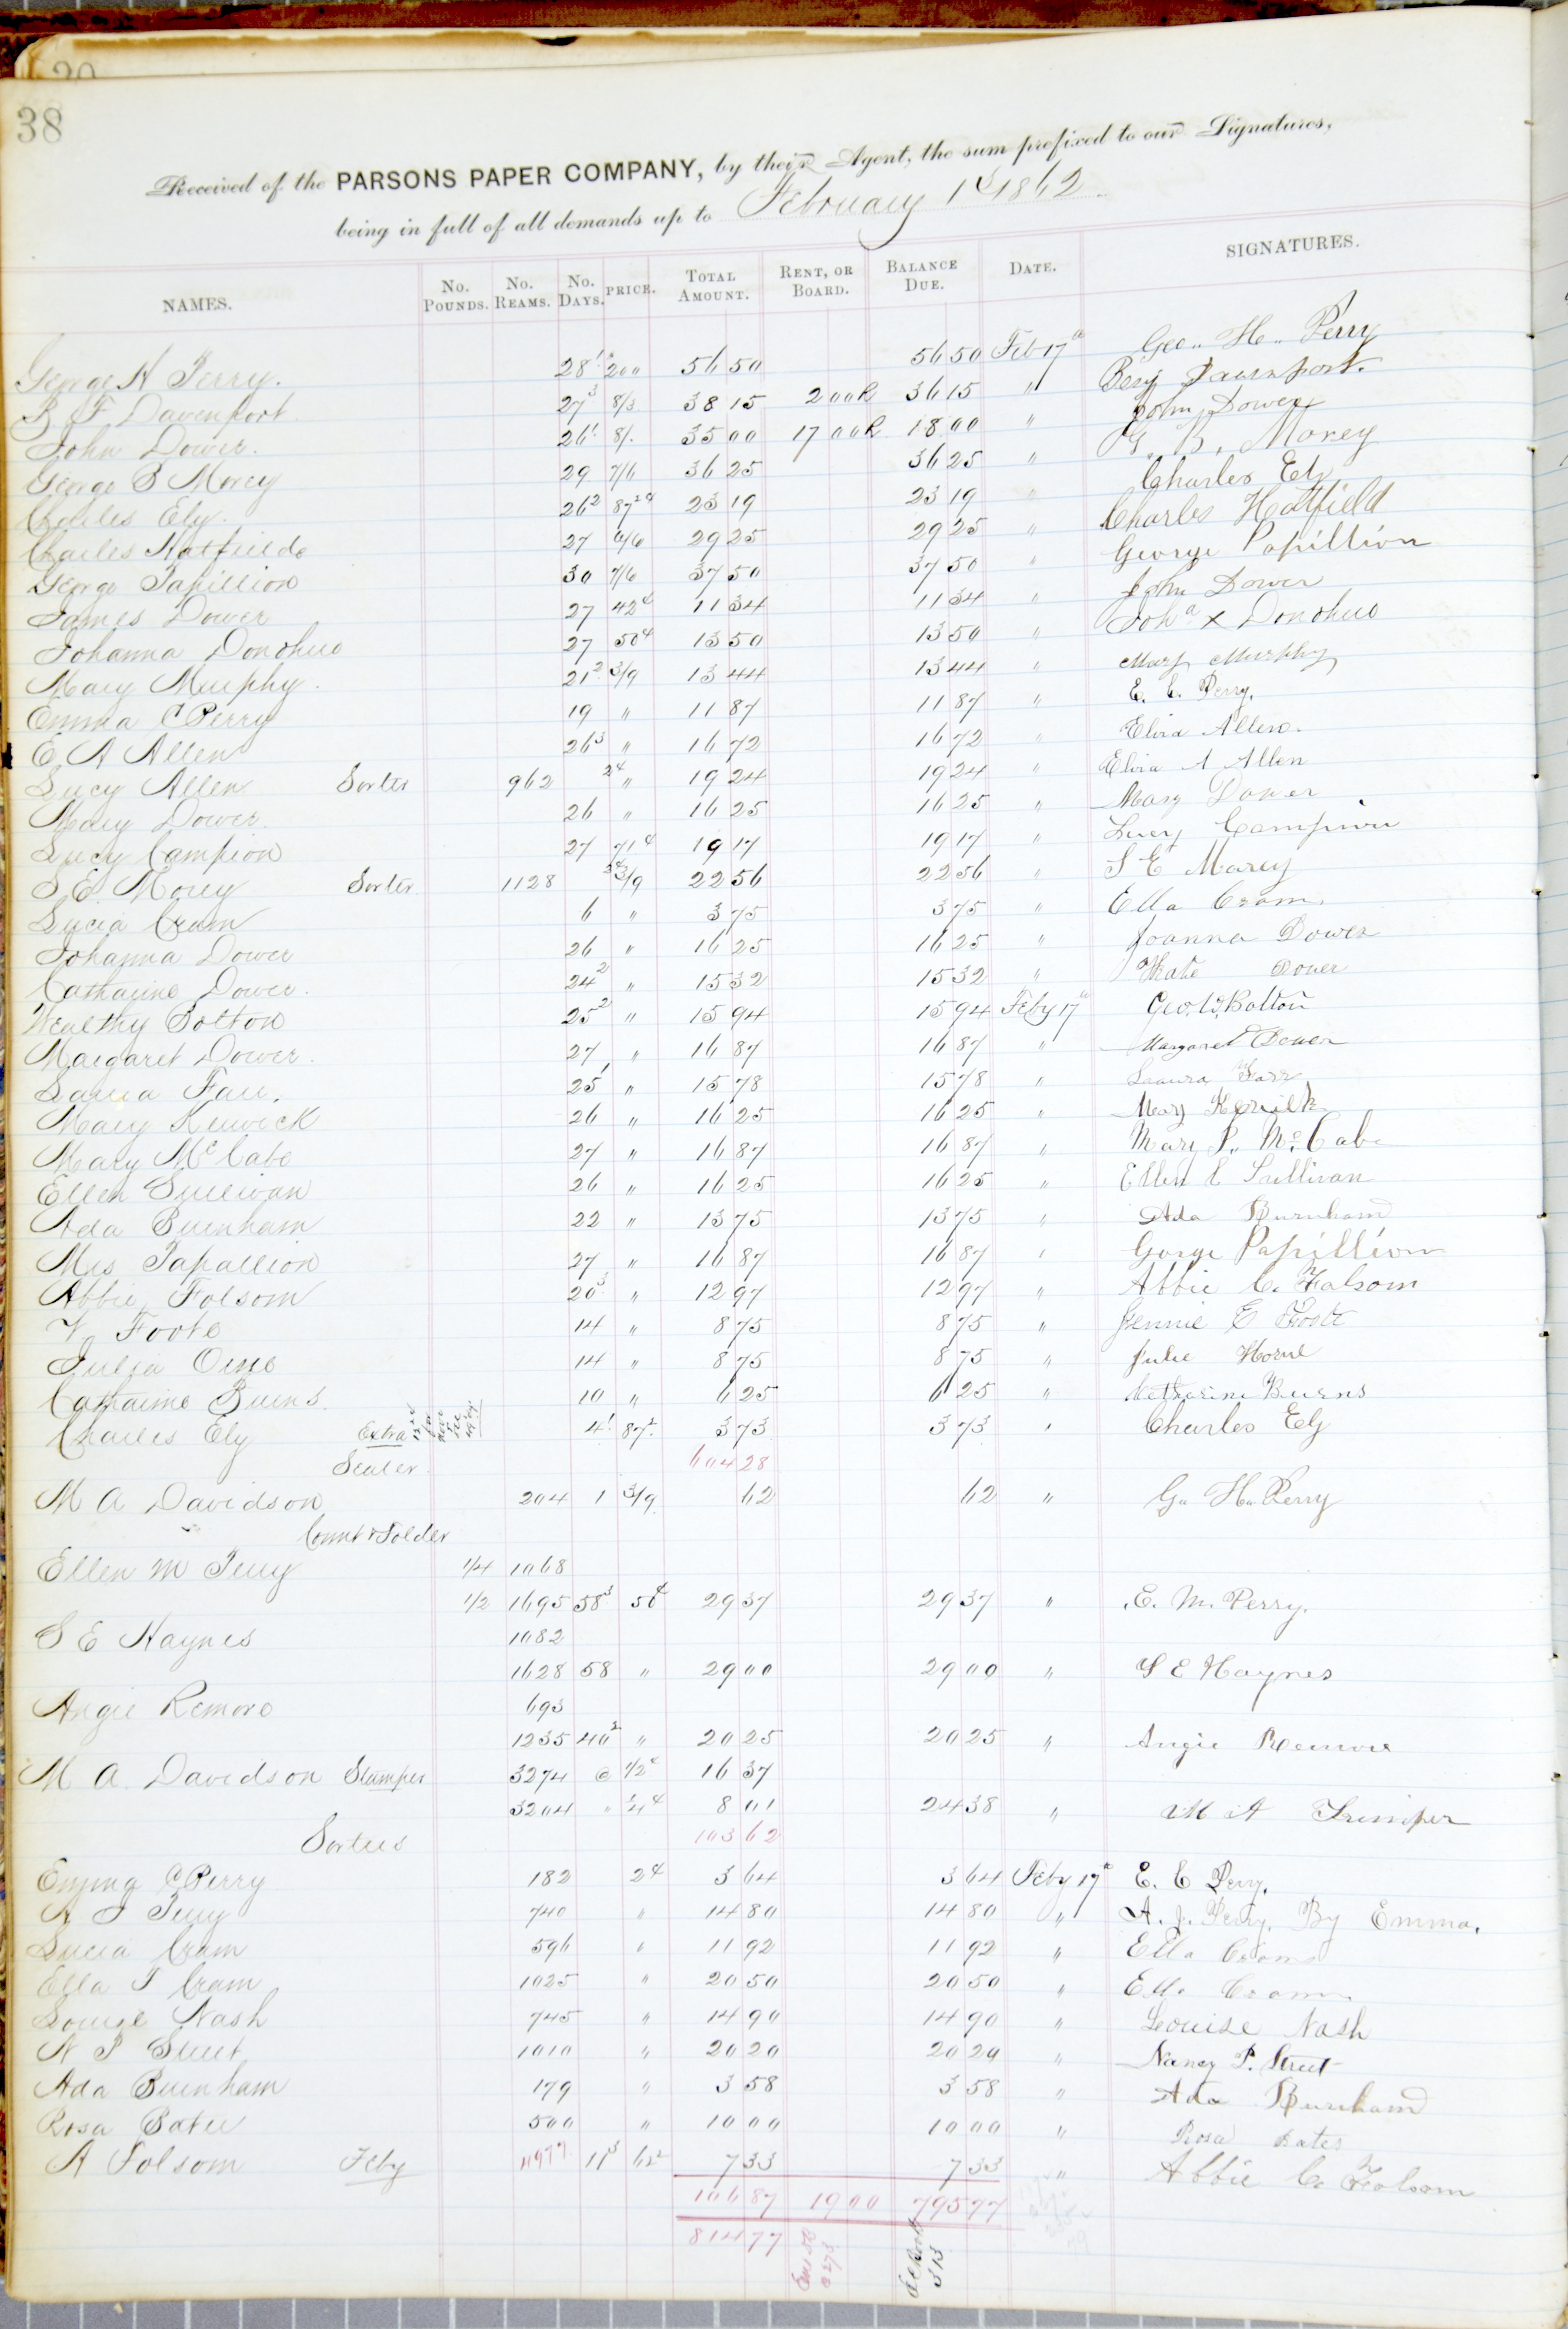 38
Received of the PARSONS PAPER COMPANY, by their Agent, the sum prefixed to our Signatures,
being in full of all demands up to February 1st 1862
NAMES. No. Pounds. No. Reams. No. Days. PRICE. Total Amount. Rent, or Board. Balance Due. Date. SIGNATURES.
George H Perry. 28 1 200 56 50 56 50 Feb 17th Geo. H. Perry
B F Davenport 27 3 8/3 38 15 2 00 R 36 15 " Benj Davenport.
John Dower. 26 1 8/. 35 00 17 00 R 18 00 " John Dower
George B Morey 29 7/6 36 25 36 25 " G. B. Morey
Charles Ely. 26 2 87 2 c 23 19 23 19 " Charles Ely
Charles Hatfield 27 6/6 29 25 29 25 " Charles Hatfield
George Papillion 30 7/6 37 50 37 50 " George Papillion
James Dower 27 42 c 11 34 11 34 " John Dower
Johanna Donohue 27 50 c 13 50 13 50 " Joh a x Donohue
Mary Murphy. 21 2 3/9 13 44 13 44 " Mary Murphy
Emma C Perry 19 " 11 87 11 87 " E. C. Perry.
E A Allen 26 3 " 16 72 16 72 " Elvia Allen.
Lucy Allen Sorter 962 2 c " 19 24 19 24 " Elvia A Allen
Mary Dower. 26 " 16 25 16 25 " Mary Dower
Lucy Campion 27 71 c 19 17 19 17 " Lucy Campion
S. E. Morey Sorter 1128 2 c 3/9 22 56 22 56 " S E Morey
Lucia Cram 6 " 3 75 3 75 " Ella Cram.
Johanna Dower 26 " 16 25 16 25 " Joanna Dower
Catharine Dower. 24 2 " 15 32 15 32 " Kate Dower
Wealthy Bolton 25 2 " 15 94 15 94 Feby 17th Geo. W. Bolton
Margaret Dower. 27 " 16 87 16 87 " Margaret Dower
Laura Farr. 25 1 " 15 78 15 78 " Laura Farr
Mary Kerwick 26 " 16 25 16 25 " Mary Kerwick
Mary McCabe 27 " 16 87 16 87 " Mary P. McCabe
Ellen Sullivan 26 " 16 25 16 25 " Ellen E Sullivan
Ada Burnham 22 " 13 75 13 75 " Ada Burnham
Mrs Papallion 27 " 16 87 16 87 " George Papillion
Abbie Folsom 20 3 " 12 97 12 97 " Abbie C. Folsom
Foote 14 " 8 75 8 75 " Jennie E Foote
Julia Orne 14 " 8 75 8 75 " Julie Horne
Catharine Burns. 10 " 6 25 6 25 " Katharine Burns
Charles Ely Extra 4 1 87 2 3 73 3 73 " Charles Ely
Sealer 604 28
M A Davidson 204 1 3/9 62 62 " G. H. Perry
Count & Folder
Ellen M Perry 1/4 1068
1/2 1695 58 3 50 c 29 37 29 37 " E. M. Perry.
S E Haynes 1082
1628 58 " 29 00 29 00 " S E Haynes
Angie Remore 693
1235 40 2 " 20 25 20 25 " Angie Remore
M A Davidson Stamper 3274 @ 1/2 c 16 37
3204 " 1/4 c 8 01 24 38 " M A
Sorters 103 62
Emma C Perry 182 2 c 3 64 3 64 Feby 17th E. C Perry.
A J Perry 740 " 14 80 14 80 " A. J. Perry. By Emma.
Lucia Cram 596 " 11 92 11 92 " Ella Cram
Ella J Cram 1025 " 20 50 20 50 " Ella Cram
Louise Nash 745 " 14 90 14 90 " Louise Nash
N P Street 1010 " 20 20 20 20 " Nancy P. Street
Ada Burnham 179 " 3 58 3 58 " Ada Burnham
Rosa Bates 500 " 10 00 10 00 " Rosa Bates
A Folsom Feby 4977 11 3 62 2 7 33 7 33 " Abbie C. Folsom
106 87 19 00 795 77
814 77